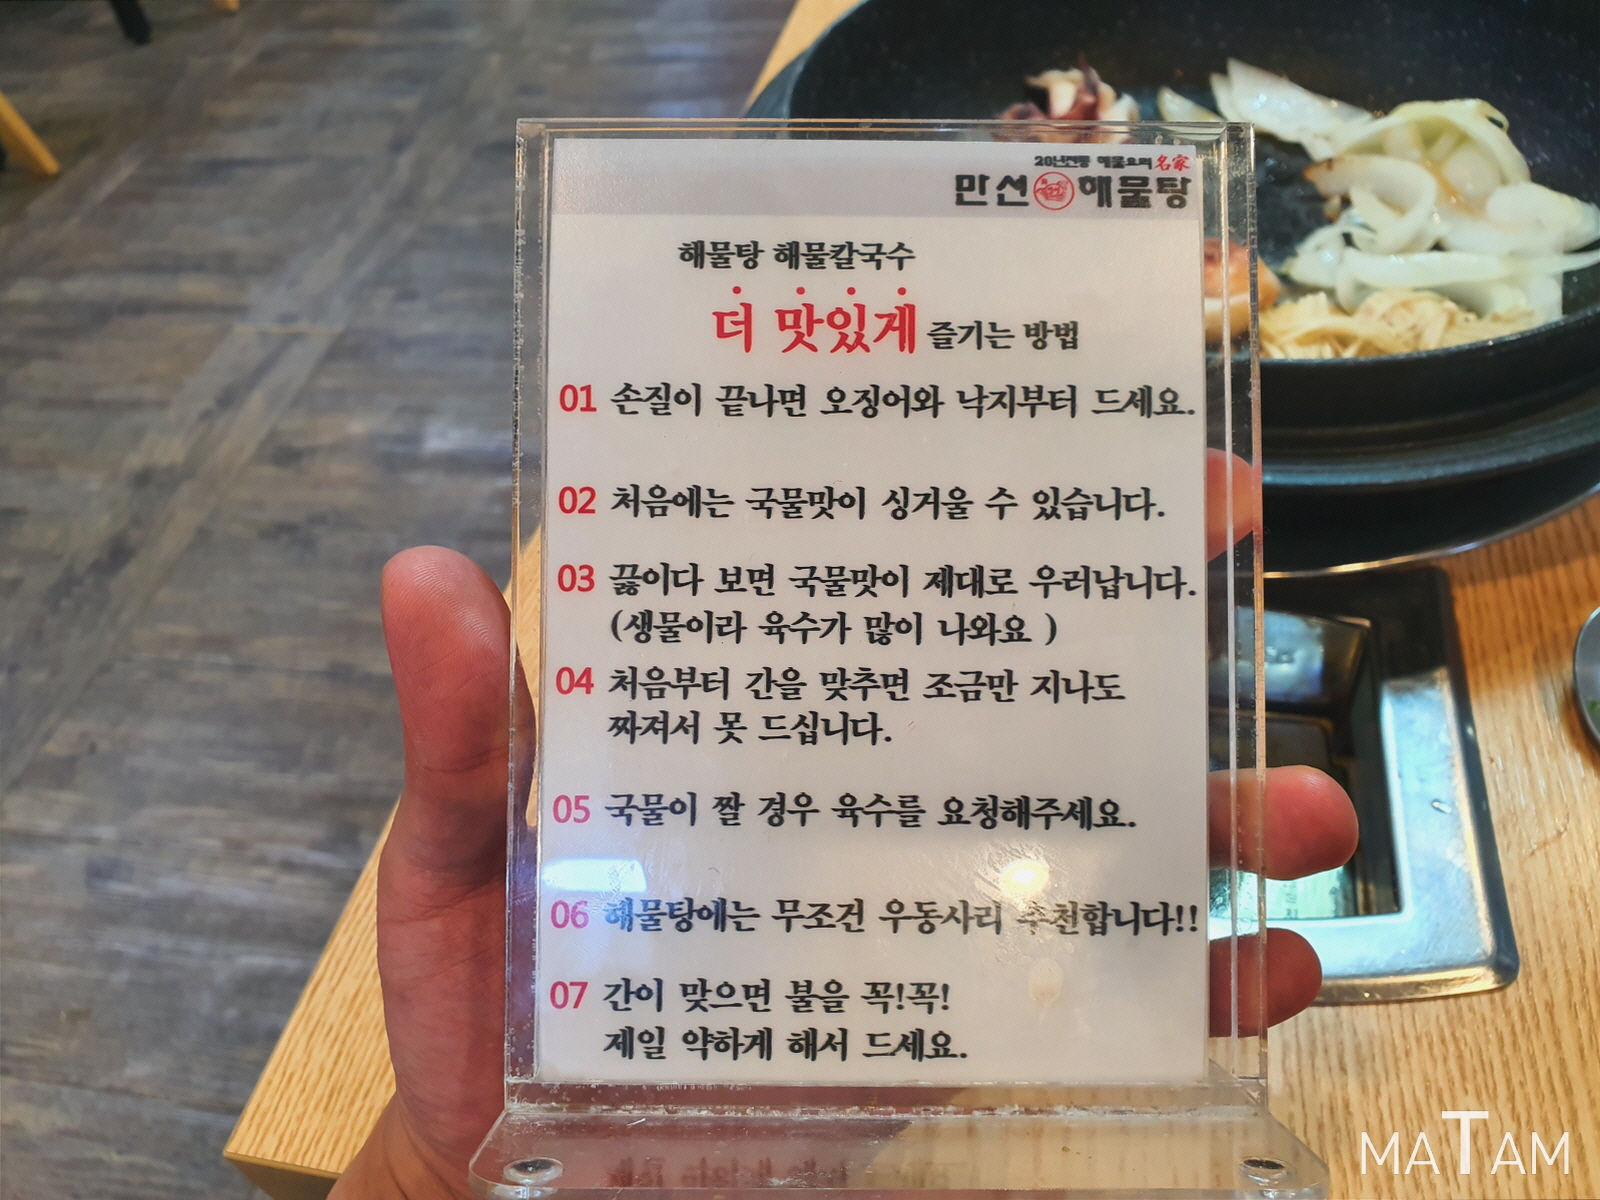 20년전통 해물요리 名家
만선 해물탕
해물탕 해물칼국수
더 맛있게 즐기는 방법
01 손질이 끝나면 오징어와 낙지부터 드세요.
02 처음에는 국물맛이 싱거울 수 있습니다.
03 끓이다 보면 국물맛이 제대로 우러납니다.
(생물이라 육수가 많이 나와요 )
04 처음부터 간을 맞추면 조금만 지나도
짜져서 못 드십니다.
05 국물이 짤 경우 육수를 요청해주세요.
06 해물탕에는 무조건 우동사리 추천합니다!!
07 간이 맞으면 불을 꼭!꼭!
제일 약하게 해서 드세요.
MATAM